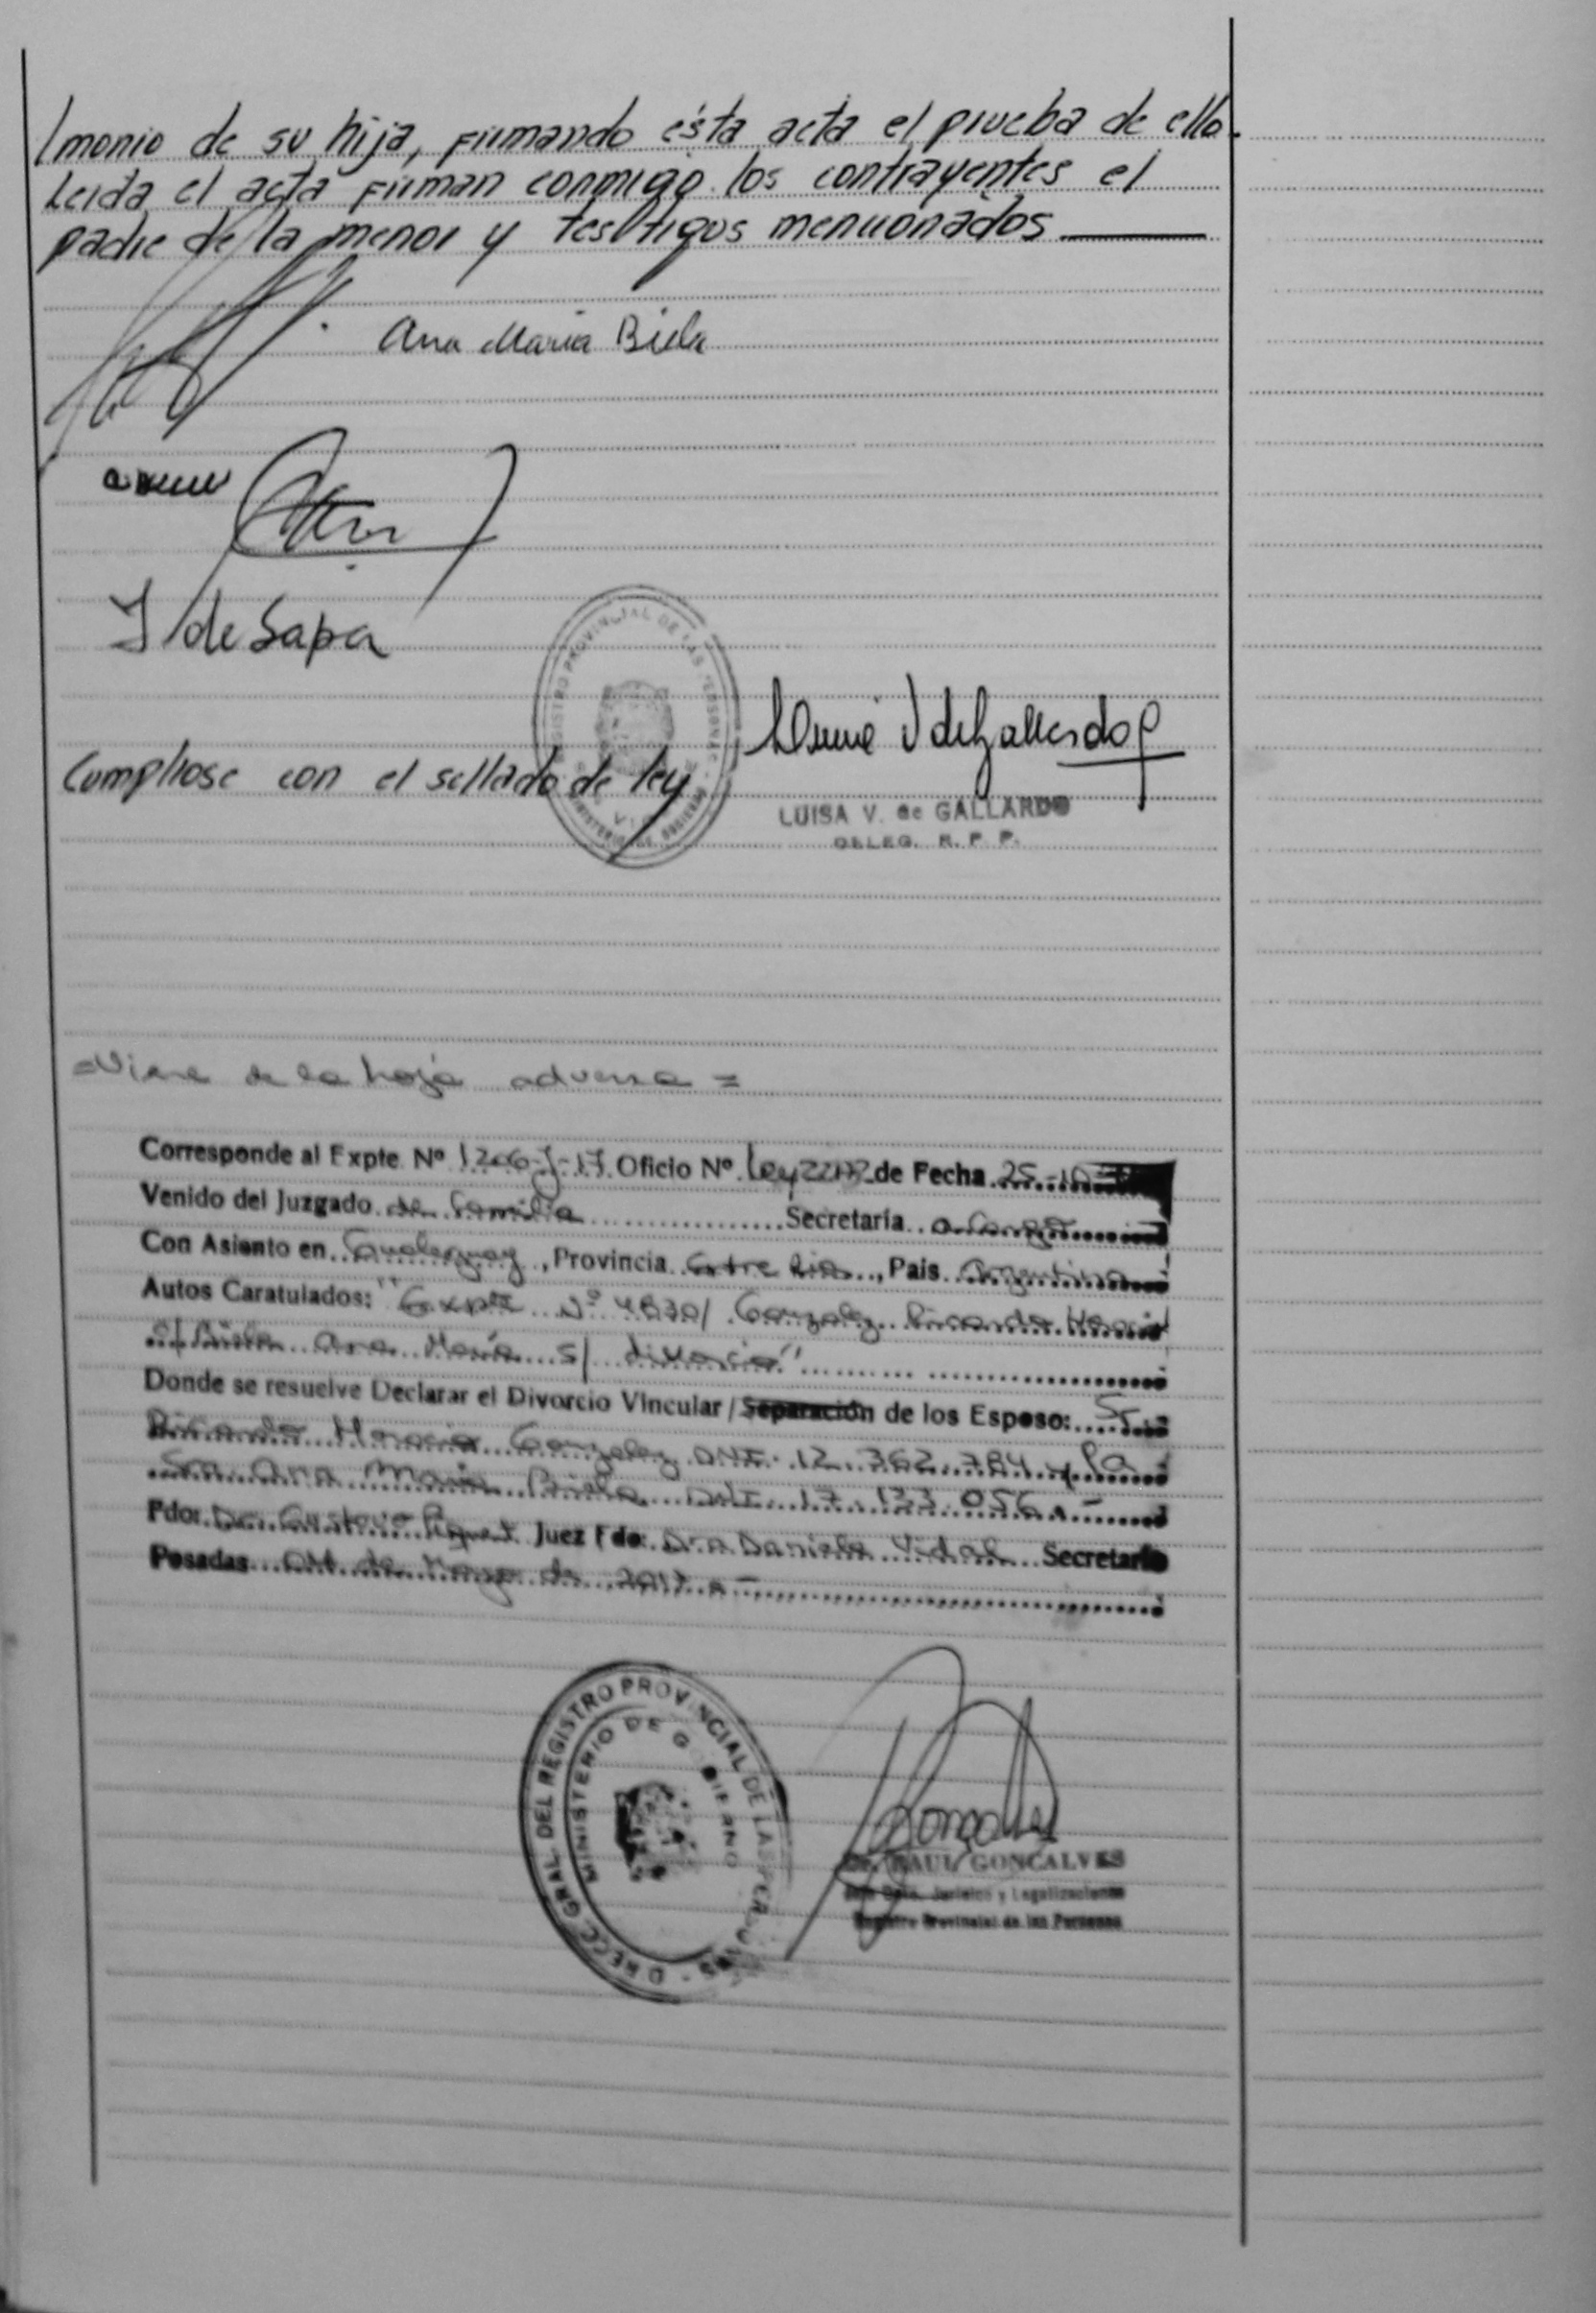 /monio de su hija, firmando ésta acta el prueba de ello.
Leida el acta firman conmigo los contrayentes el
padre de la menor y testigos mencionados
Ana Maria Biela
J de Sapa
REGISTRO PROVINCIAL DE LAS PERSONAS
MINISTERIO DE GOBIERNO
Cumpliose con el sellado de ley
LUISA V. de GALLARDO
DELEG. R. P. P.
=Viene de la hoja adversa =
Corresponde al Expte. Nº 1206-J-17. Oficio Nº ley 22172 de Fecha 25-10-
Venido del Juzgado de Familia Secretaría a Cargo
Con Asiento en Gualeguay, Provincia Entre Rios, País Argentina
Autos Caratulados: "Expte Nº 4830/ Gonzalez Ricardo Horacio
c/ Biela Ana María s/ divorcio"
Donde se resuelve Declarar el Divorcio Vincular / Separación de los Esposo: Sr.
Ricardo Horacio Gonzalez DNI. 12.362.784 y la
Sra Ana Maria Biela DNI 17.133.056.-
Fdo: Dr. Gustavo Juez Fdo: Dra Daniela Vidal Secretaria
Posadas 04 de Mayo de 2017.-
DIRECC. GRAL. DEL REGISTRO PROVINCIAL DE LAS PERSONAS
MINISTERIO DE GOBIERNO
Dr. RAUL GONCALVES
Jurídico y Legalizaciones
Registro Provincial de las Personas